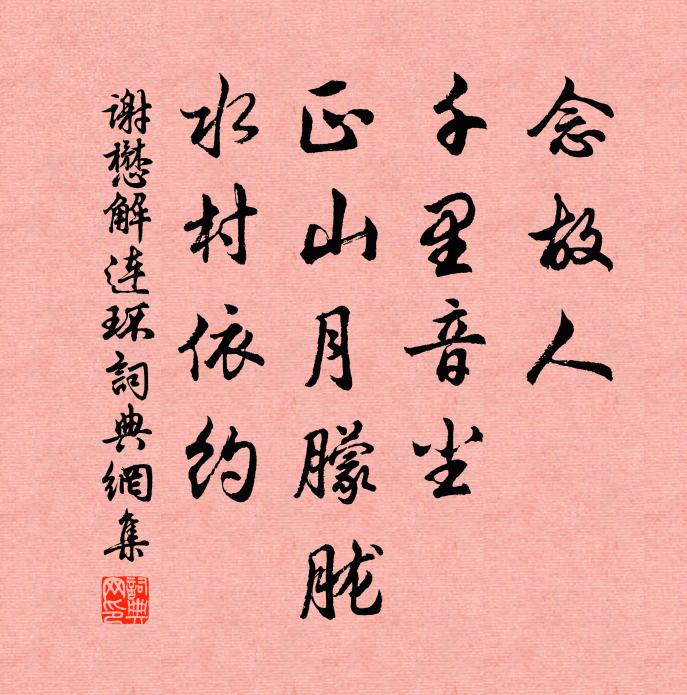 念故人
千里音尘
正山月朦胧
水村依约
谢懋解连环词典網集
詞典网印